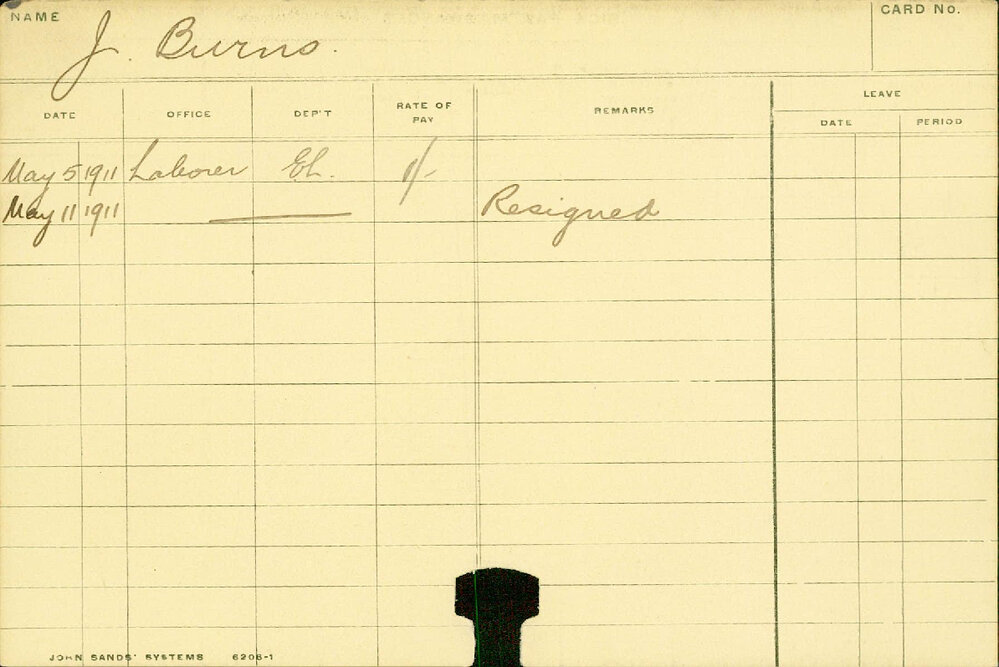 NAME
CARD No.
J. Burns.
DATE OFFICE DEP'T RATE OF PAY REMARKS LEAVE
DATE PERIOD
May 5 1911 Laborer EL.
May 11 1911 Resigned
JOHN SANDS' SYSTEMS 6206-1